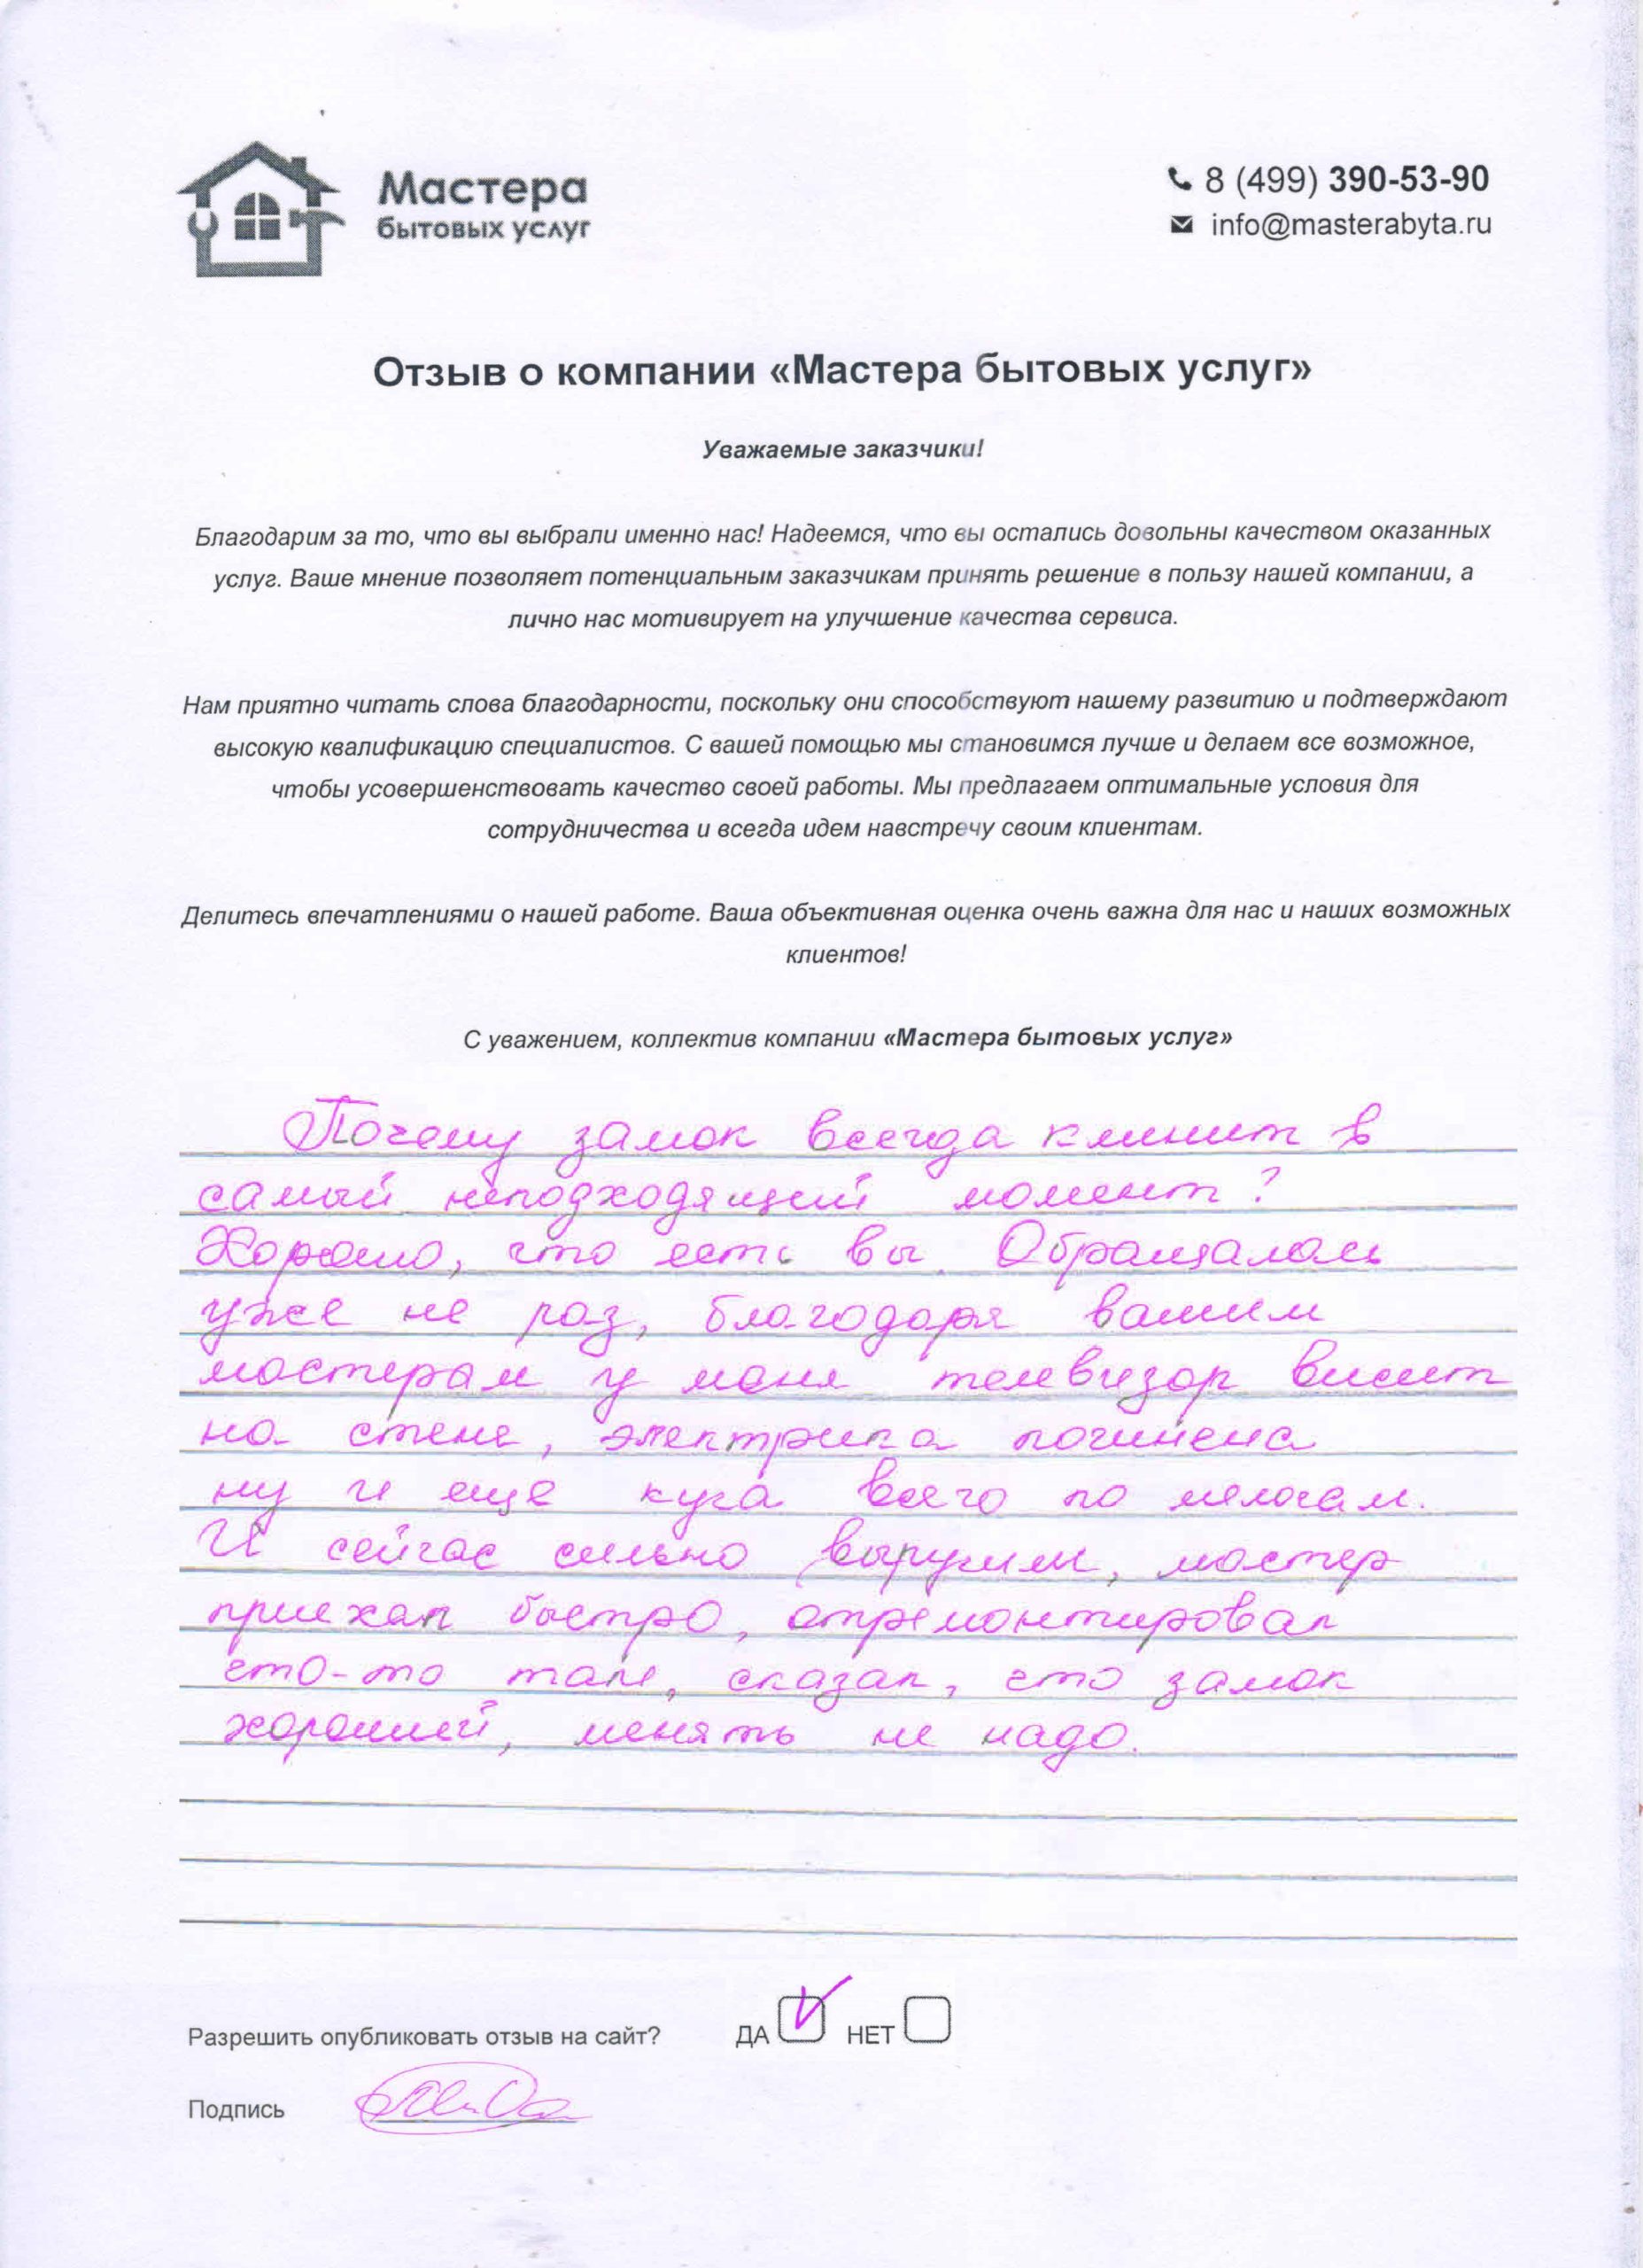 Мастера
бытовых услуг
8 (499) 390-53-90
info@masterabyta.ru
Отзыв о компании «Мастера бытовых услуг»
Уважаемые заказчики!
Благодарим за то, что вы выбрали именно нас! Надеемся, что вы остались довольны качеством оказанных
услуг. Ваше мнение позволяет потенциальным заказчикам принять решение в пользу нашей компании, а
лично нас мотивирует на улучшение качества сервиса.
Нам приятно читать слова благодарности, поскольку они способствуют нашему развитию и подтверждают
высокую квалификацию специалистов. С вашей помощью мы становимся лучше и делаем все возможное,
чтобы усовершенствовать качество своей работы. Мы предлагаем оптимальные условия для
сотрудничества и всегда идем навстречу своим клиентам.
Делитесь впечатлениями о нашей работе. Ваша объективная оценка очень важна для нас и наших возможных
клиентов!
С уважением, коллектив компании «Мастера бытовых услуг»
Почему замок всегда клинит в
самый неподходящий момент?
Хорошо, что есть вы. Обращалась
уже не раз, благодаря вашим
мастерам у меня телевизор висит
на стене, электрика починена
ну и еще куча всего по мелочам.
И сейчас сильно выручили, мастер
приехал быстро, отремонтировал
что-то там, сказал, что замок
хороший, менять не надо.
Разрешить опубликовать отзыв на сайт? ДА НЕТ
Подпись